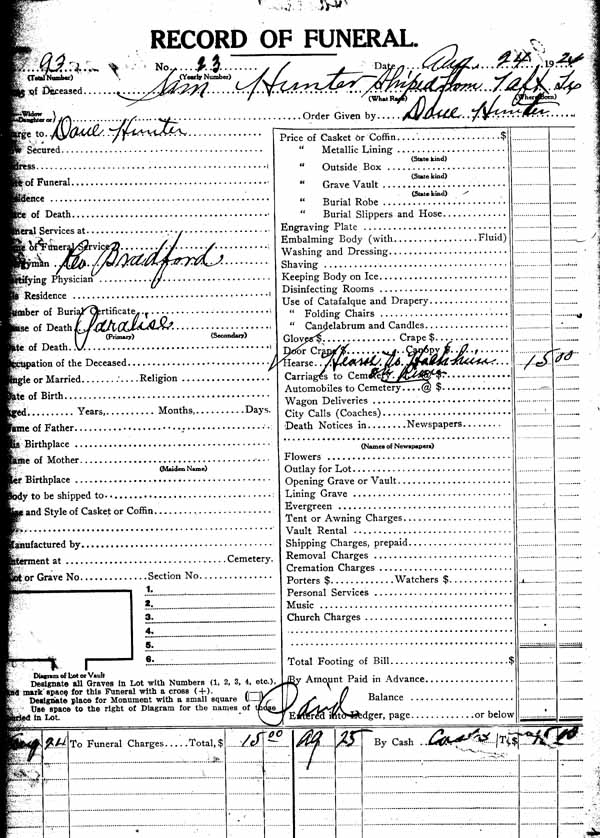 RECORD OF FUNERAL.
93 No. 23 Date Aug 24 1924
(Total Number) (Yearly Number)
of Deceased Sam Hunter Shiped from Taft Tex
(What Race) (Where Born)
Widow
Daughter or) Order Given by Dave Hunter
arge to Dave Hunter
Secured
dress
e of Funeral
sidence
ce of Death
neral Services at
e of Funeral Service
yman Rev Bradford
rtifying Physician
s Residence
umber of Burial Certificate
use of Death Paralise
(Primary) (Secondary)
ate of Death
ccupation of the Deceased
ngle or Married Religion
ate of Birth
ged Years, Months, Days.
ame of Father
is Birthplace
ame of Mother
(Maiden Name)
er Birthplace
ody to be shipped to
ze and Style of Casket or Coffin
anufactured by
nterment at Cemetery.
ot or Grave No. Section No.
1.
2.
3.
4.
5.
6.
Diagram of Lot or Vault
Designate all Graves in Lot with Numbers (1, 2, 3, 4, etc.),
nd mark space for this Funeral with a cross (+).
Designate place for Monument with a small square
Use space to the right of Diagram for the names of those
uried in Lot.
Price of Casket or Coffin $
" Metallic Lining
(State kind)
" Outside Box
(State kind)
" Grave Vault
(State kind)
" Burial Robe
" Burial Slippers and Hose
Engraving Plate
Embalming Body (with Fluid)
Washing and Dressing
Shaving
Keeping Body on Ice
Disinfecting Rooms
Use of Catafalque and Drapery
" Folding Chairs
" Candelabrum and Candles
Gloves $ Crape $
Door Crape $ Canopy $
Hearse Hearse to 15 00
Carriages to Cemetery @ $
Automobiles to Cemetery @ $
Wagon Deliveries
City Calls (Coaches)
Death Notices in Newspapers
(Names of Newspapers)
Flowers
Outlay for Lot
Opening Grave or Vault
Lining Grave
Evergreen
Tent or Awning Charges
Vault Rental
Shipping Charges, prepaid
Removal Charges
Cremation Charges
Porters $ Watchers $
Personal Services
Music
Church Charges
Total Footing of Bill $
By Amount Paid in Advance
Balance
Paid
Entered into Ledger, page or below
Aug 24 To Funeral Charges Total, $ 15 00 Ag 25 By Cash $ 15 00